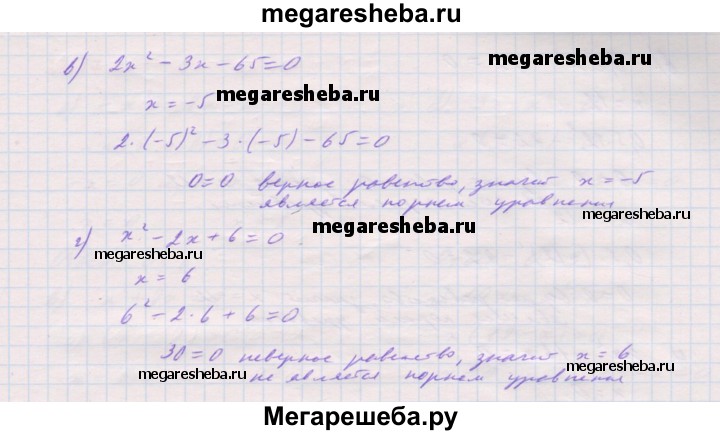 megaresheba.ru
в) 2x² - 3x - 65 = 0
megaresheba.ru
x = -5
megaresheba.ru
2·(-5)² - 3·(-5) - 65 = 0
0 = 0 верное равенство, значит x = -5
является корнем уравнения
megaresheba.ru
г) x² - 2x + 6 = 0
megaresheba.ru
megaresheba.ru
x = 6
6² - 2·6 + 6 = 0
30 = 0 неверное равенство, значит x = 6
megaresheba.ru
не является корнем уравнения
megaresheba.ru
Мегарешеба.ру